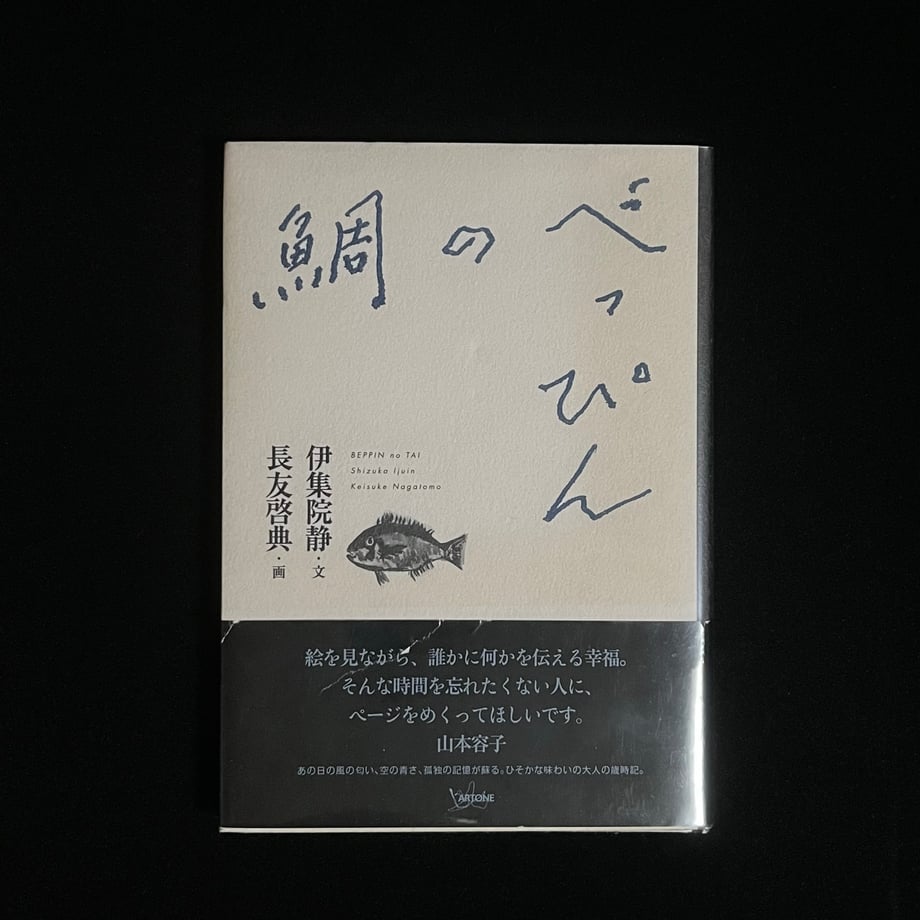 べっぴん
の
鯛
BEPPIN no TAI
Shizuka Ijuin
Keisuke Nagatomo
伊集院静・文
長友啓典・画
絵を見ながら、誰かに何かを伝える幸福。
そんな時間を忘れたくない人に、
ページをめくってほしいです。
山本容子
あの日の風の匂い、空の青さ、孤独の記憶が蘇る。ひそかな味わいの大人の歳時記。
ARTONE